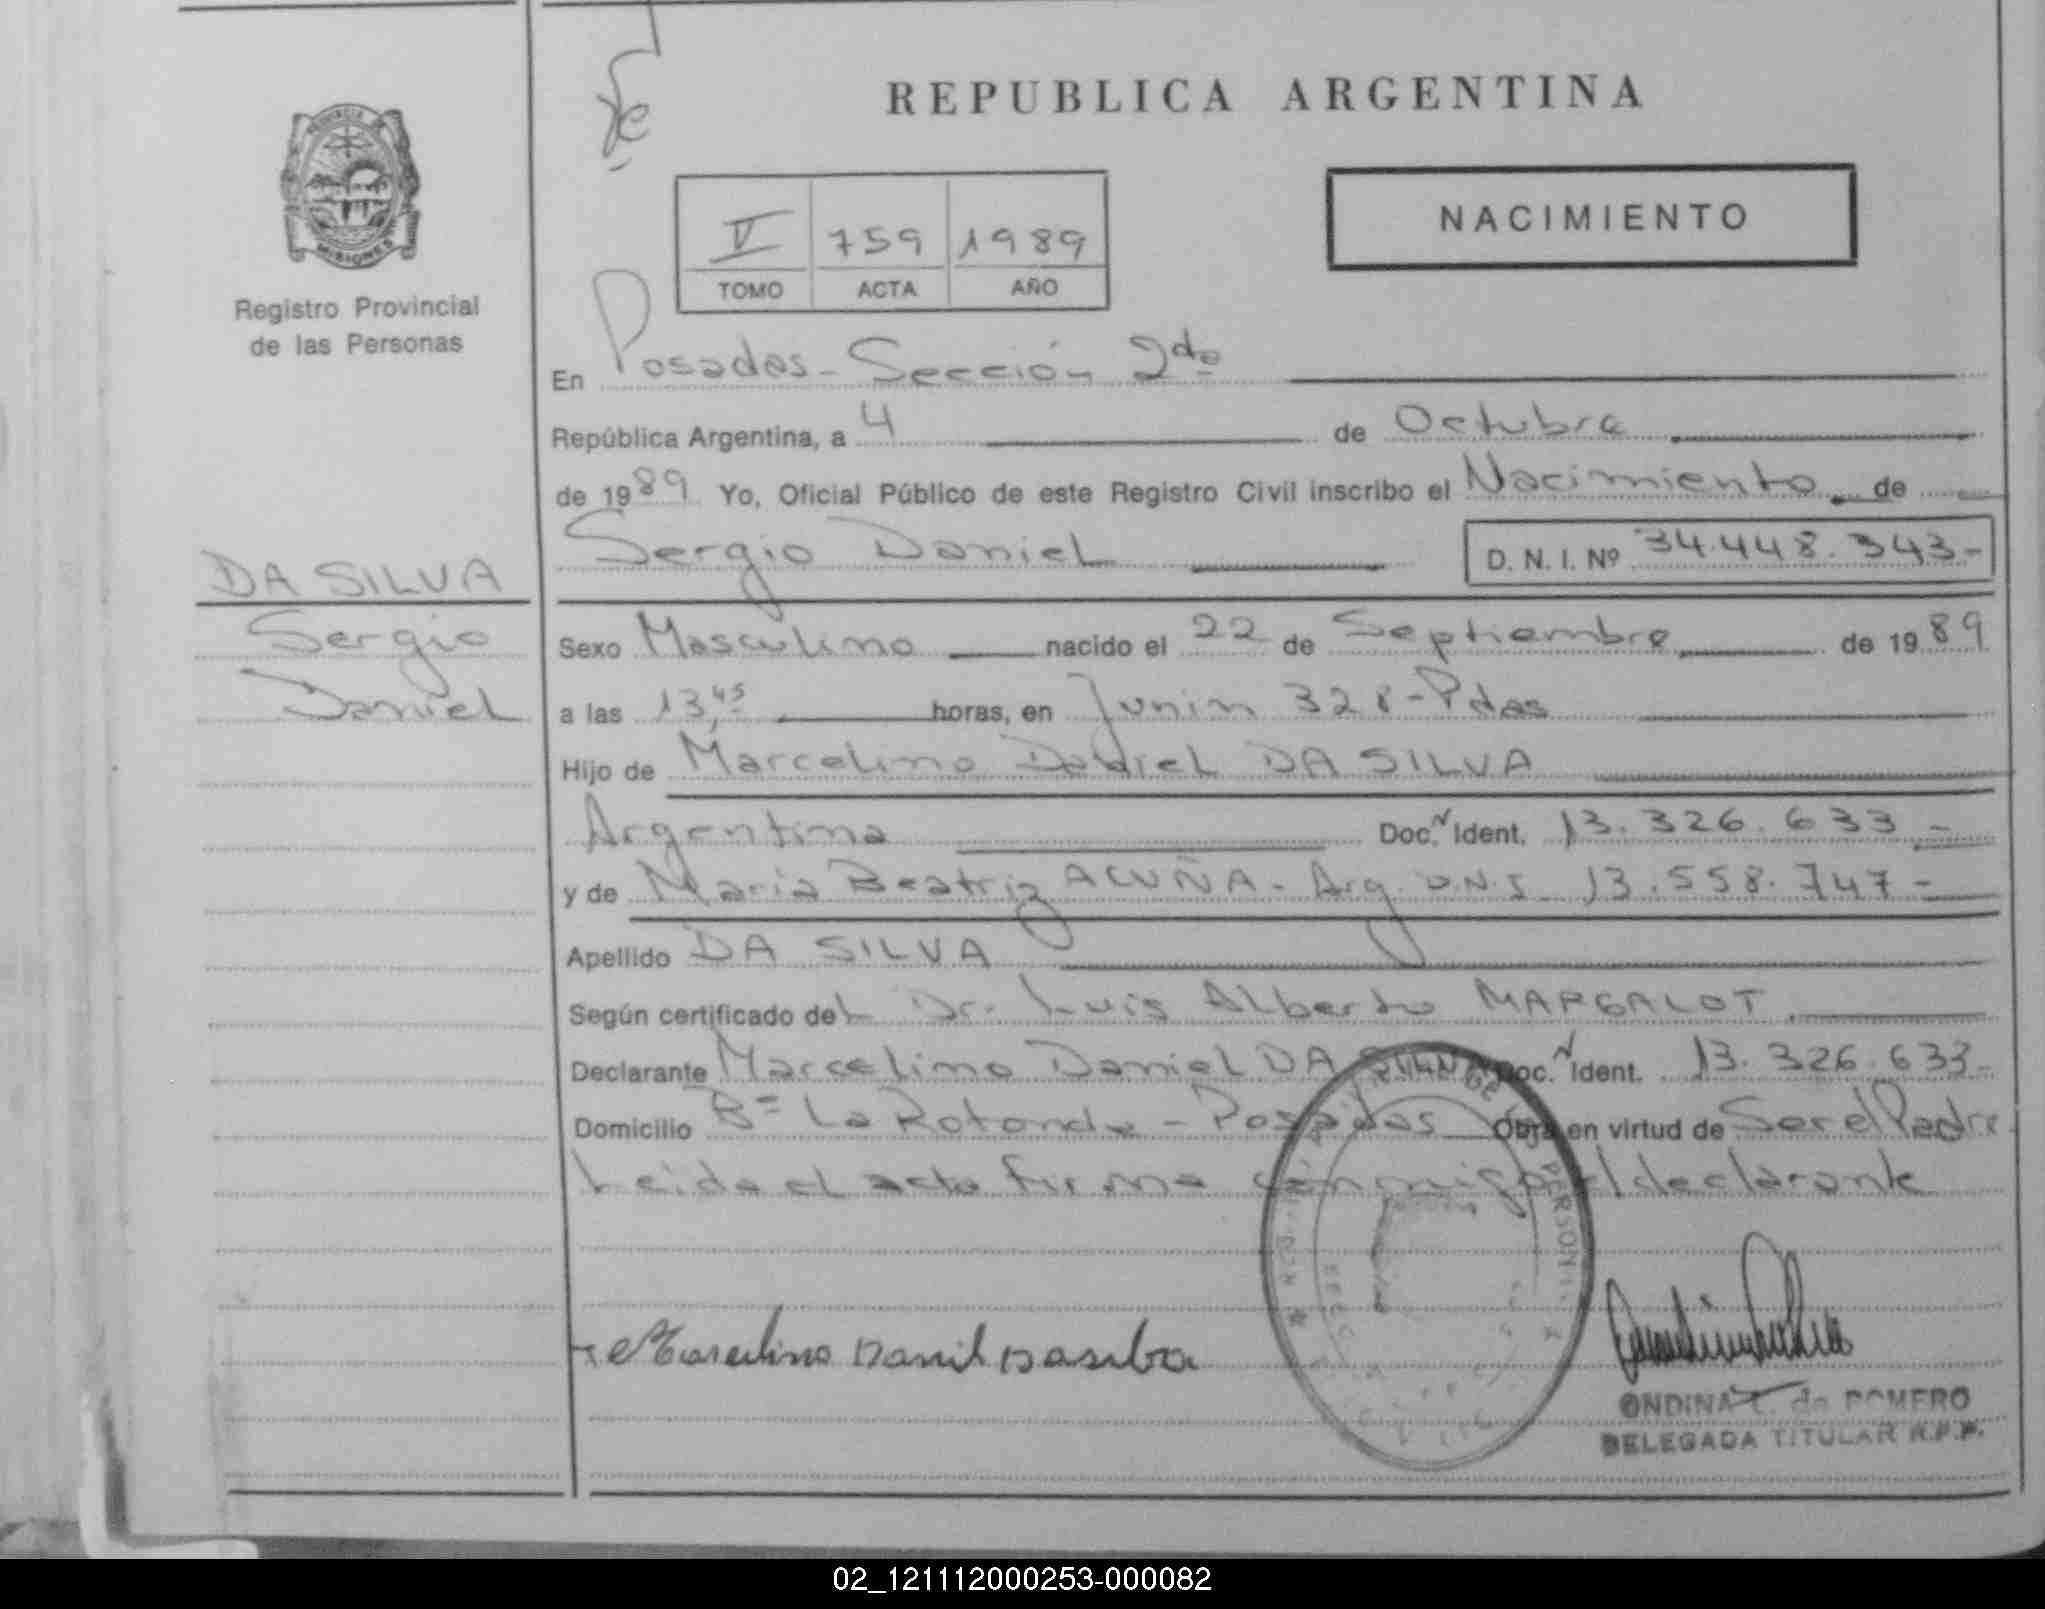 REPUBLICA ARGENTINA
MISIONES
Registro Provincial
de las Personas
V 759 1989
TOMO ACTA AÑO
NACIMIENTO
En Posadas - Sección 2da
República Argentina, a 4 de Octubre
de 1989 Yo, Oficial Público de este Registro Civil inscribo el Nacimiento de
Sergio Daniel D. N. I. Nº 34.448.343-
DA SILVA
Sergio
Daniel
Sexo Masculino nacido el 22 de Septiembre de 1989
a las 13,45 horas, en Junin 328 - Pdas
Hijo de Marcelino Daniel DA SILVA
Argentina Doc. Ident. 13.326.633-
y de Maria Beatriz ACUÑA - Arg. D.N.I 13.558.747-
Apellido DA SILVA
Según certificado del Dr. Luis Alberto MARGALOT
Declarante Marcelino Daniel DA SILVA Doc. Ident. 13.326.633-
Domicilio Bº La Rotonda - Posadas Obra en virtud de Ser el Padre
Leida el acta firma conmigo el declarante
Marcelino Danil Dasilva
ONDINA de ROMERO
DELEGADA TITULAR R.P.P.
02_121112000253-000082